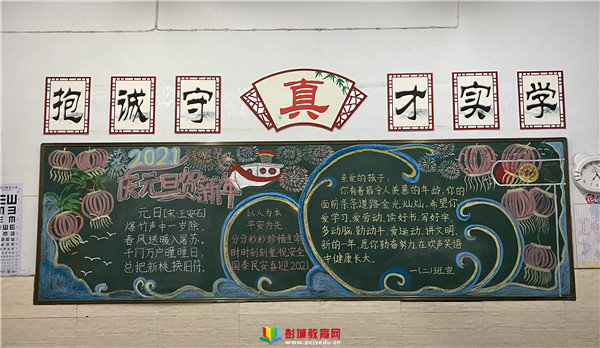 抱诚守真才实学
2021
庆元旦贺新年
元日[宋·王安石]
爆竹声中一岁除
春风送暖入屠苏.
千门万户曈曈日,
总把新桃换旧符.
以人为本
平安为先
分分秒秒珍惜生命
时时刻刻重视安全
国泰民安喜迎2021
亲爱的孩子:
你有着最令人羡慕的年龄,你的
面前条条道路金光灿灿,希望你
爱学习,爱劳动,读好书,写好字,
多动脑,勤动手,爱运动,讲文明,
新的一年,愿你勤奋努力,在欢声笑语
中健康长大.
一(二)班宣
彭城教育网
www.pcjyedu.cn